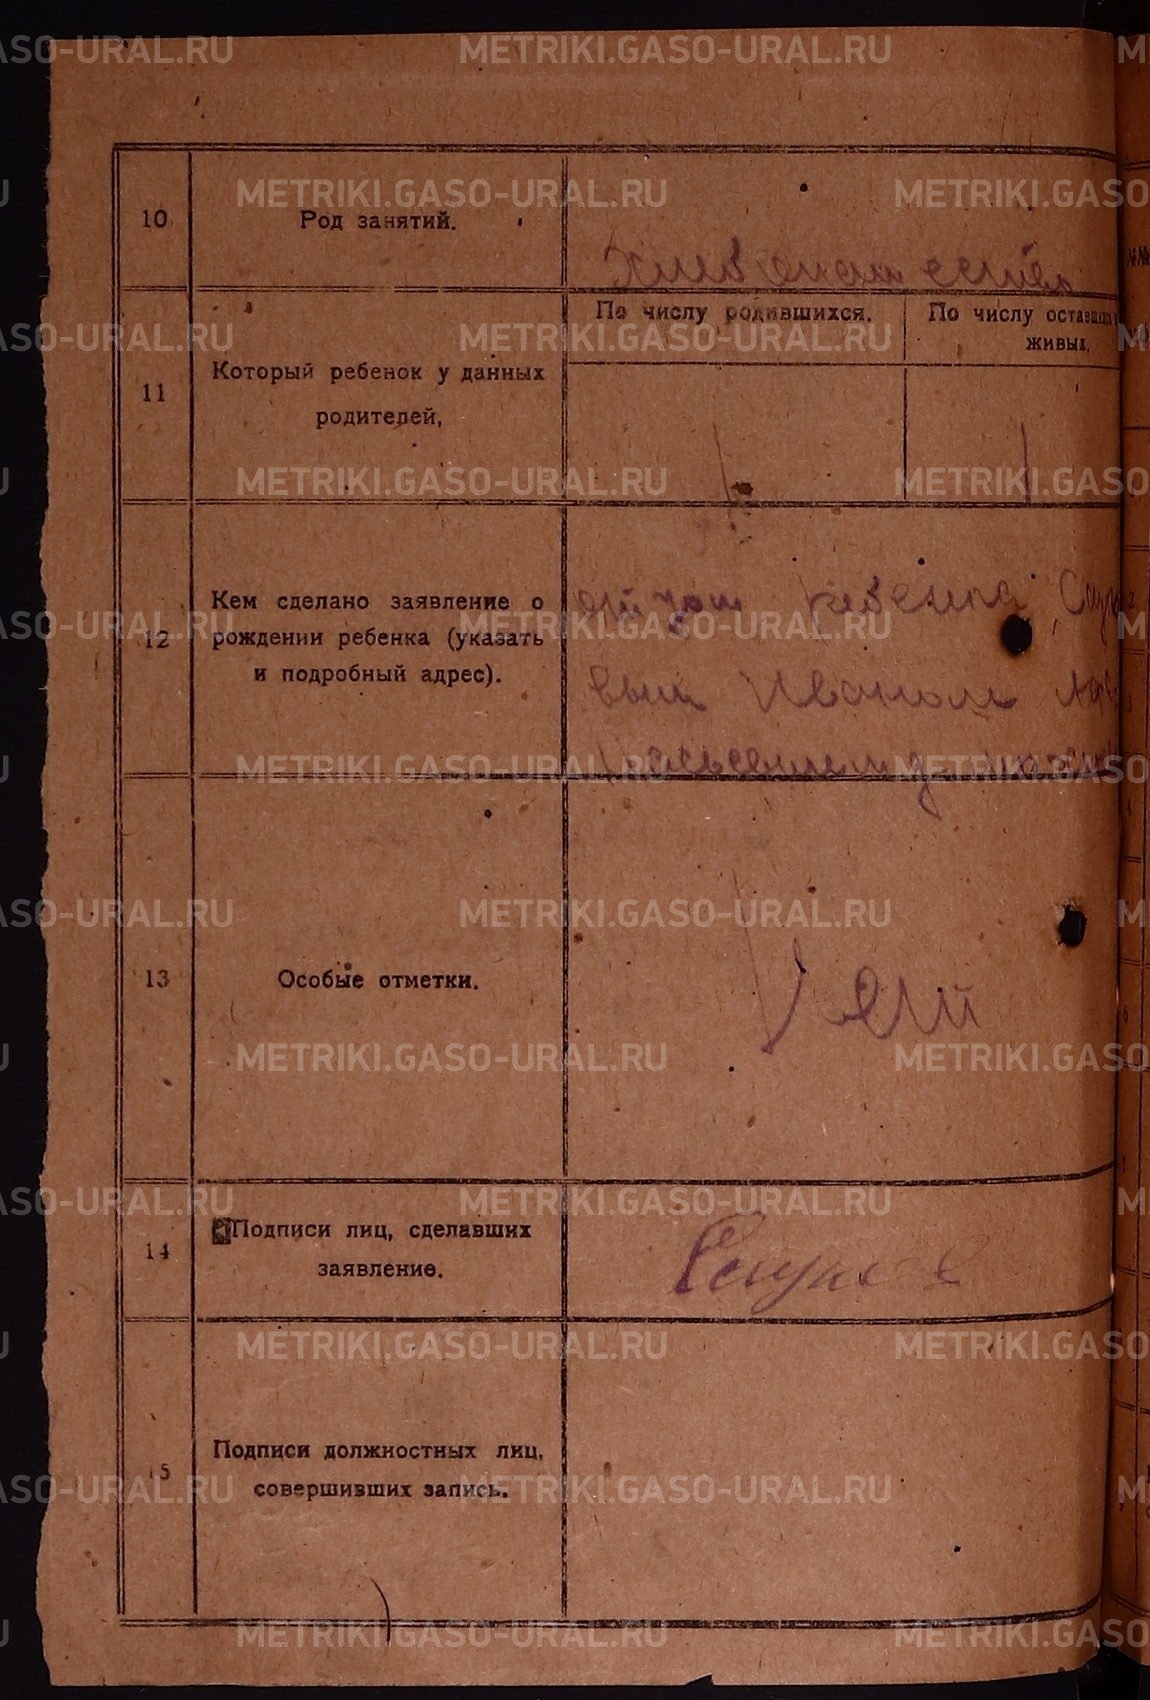 METRIKI.GASO-URAL.RU
10
Род занятий.
Хлебопашество
11
Который ребенок у данных
родителей,
По числу родившихся.
По числу оставшихся
живых,
1
1
12
Кем сделано заявление о
рождении ребенка (указать
и подробный адрес).
отцом ребенка
вым Иваном
13
Особые отметки.
Нет
14
Подписи лиц, сделавших
заявление.
15
Подписи должностных лиц,
совершивших запись.